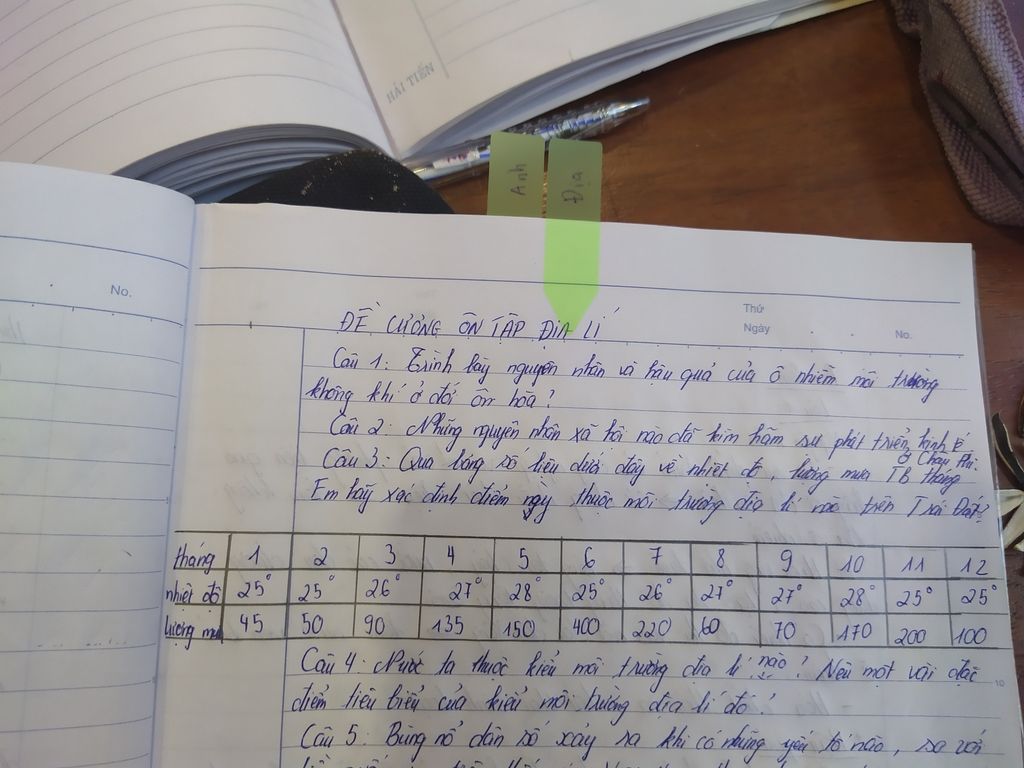 HẢI TIẾN
Anh
Địa
No.
Thứ
Ngày
No.
ĐỀ CƯƠNG ÔN TẬP ĐỊA LÍ
Câu 1: Trình bày nguyên nhân và hậu quả của ô nhiễm môi trường
không khí ở đới ôn hòa?
Câu 2: Những nguyên nhân xã hội nào đã kìm hãm sự phát triển kinh tế
ở Châu Phi.
Câu 3: Qua bảng số liệu dưới đây về nhiệt độ, lượng mưa TB tháng
Em hãy xác định điểm này thuộc môi trường địa lí nào trên Trái Đất?
tháng 1 2 3 4 5 6 7 8 9 10 11 12
nhiệt độ 25° 25° 26° 27° 28° 25° 26° 27° 27° 28° 25° 25°
lượng mưa 45 50 90 135 150 400 220 60 70 170 200 100
Câu 4: Nước ta thuộc kiểu môi trường địa lí nào? Nêu một vài đặc
điểm tiêu biểu của kiểu môi trường địa lí đó?
10
Câu 5: Bùng nổ dân số xảy ra khi có những yếu tố nào, so với